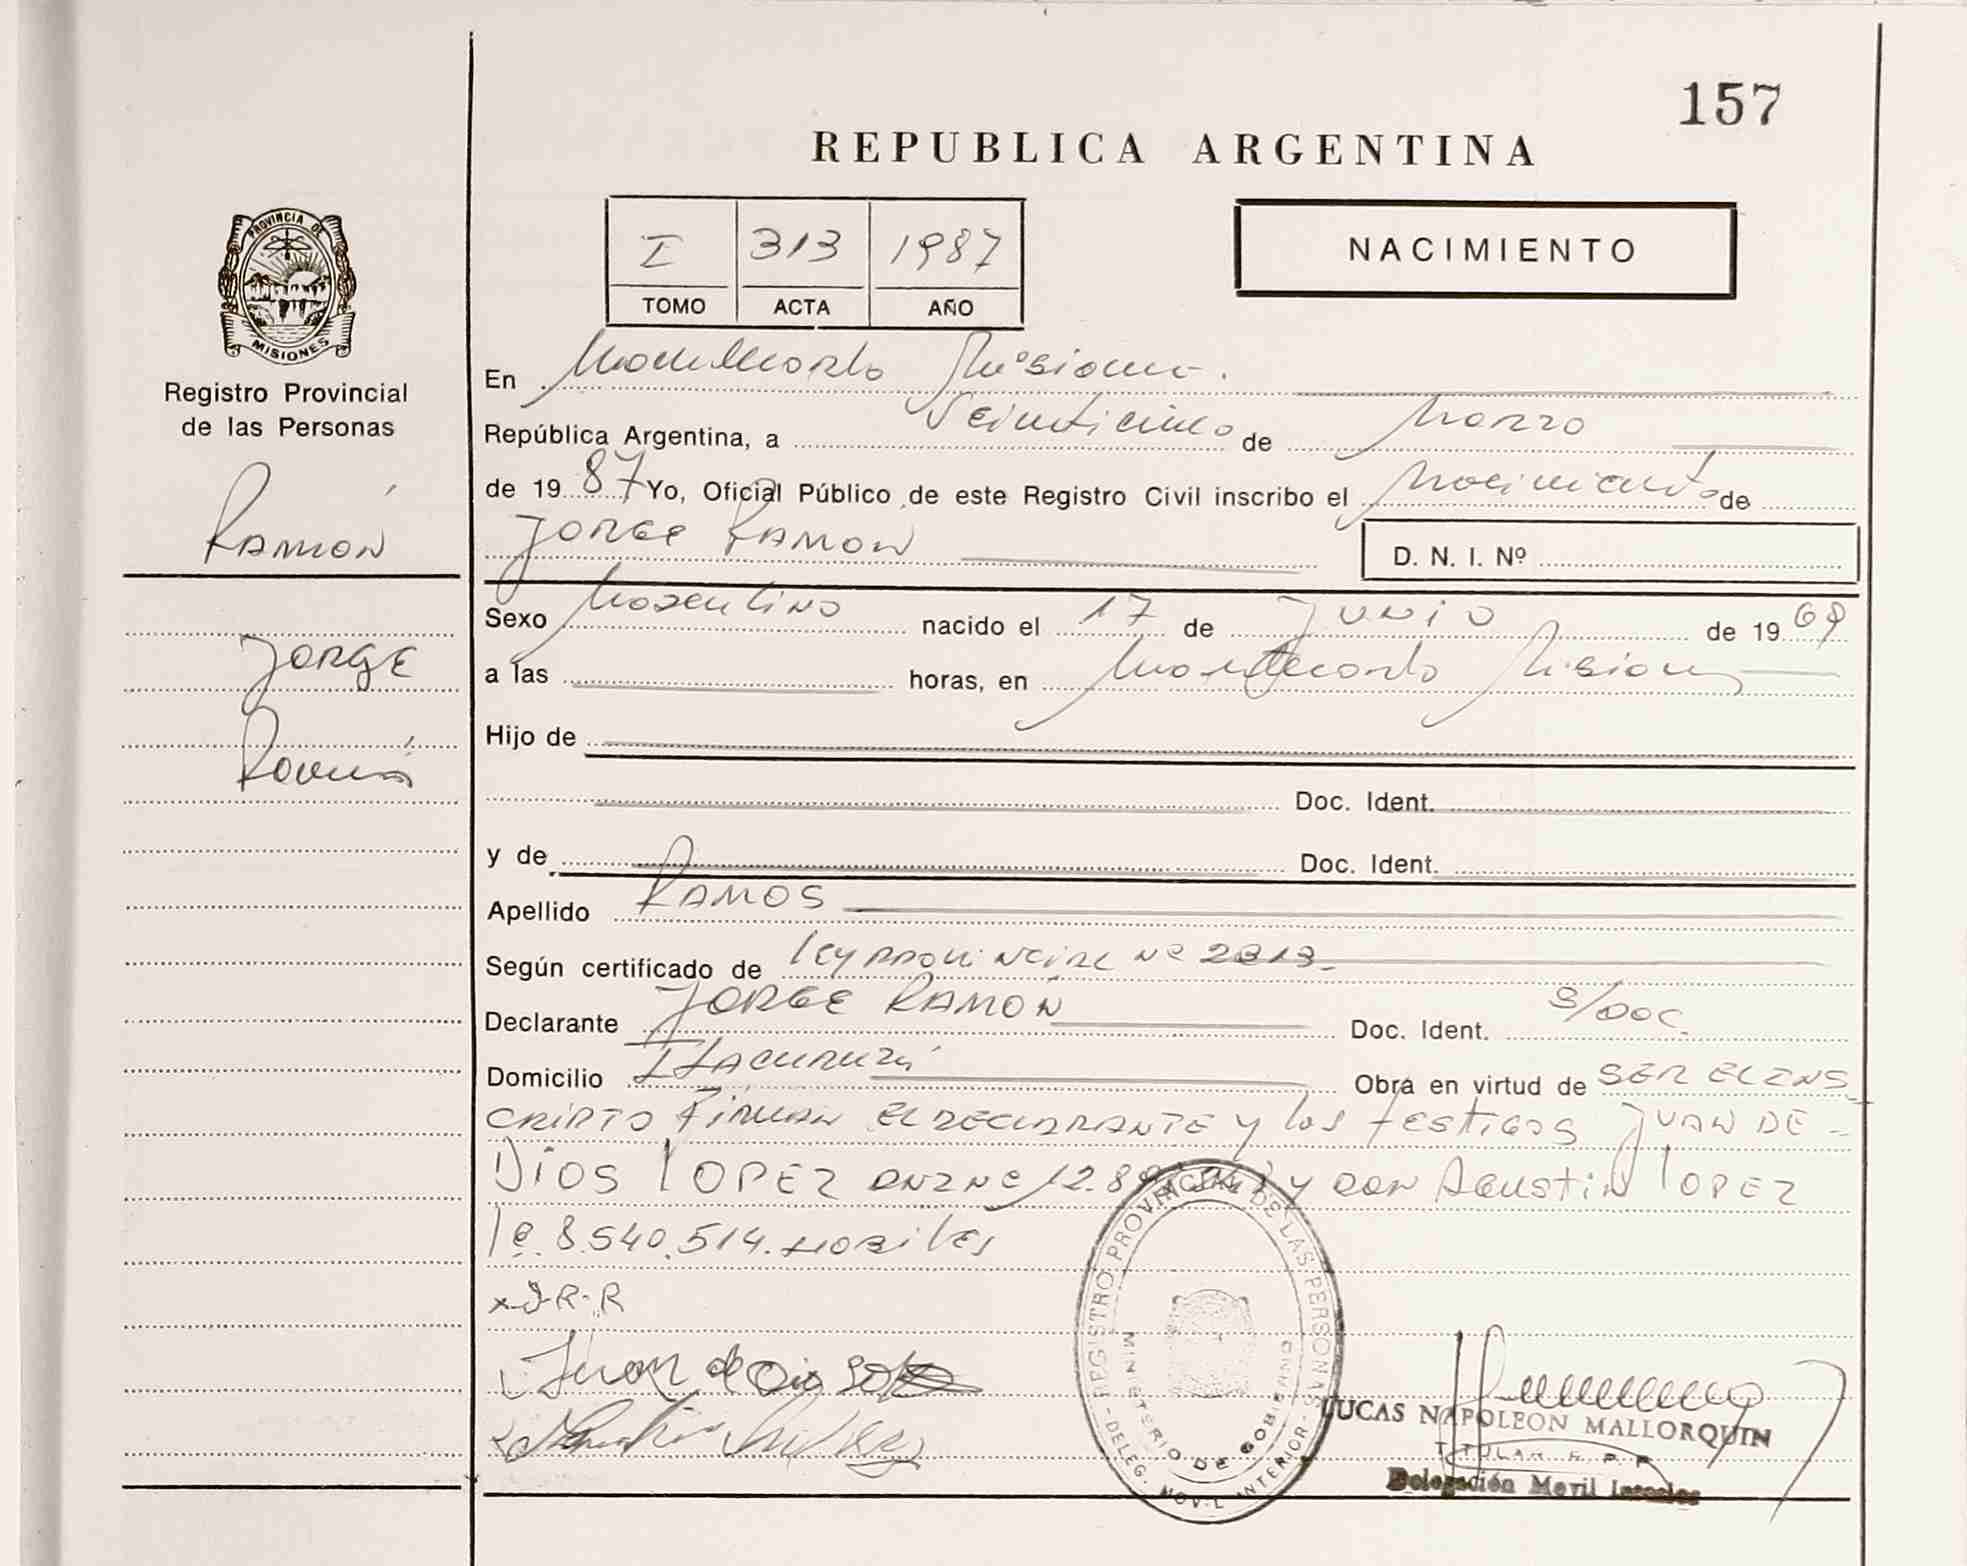 157
REPUBLICA ARGENTINA
I 313 1987
TOMO ACTA AÑO
NACIMIENTO
PROVINCIA DE
MISIONES
Registro Provincial
de las Personas
Ramón
Jorge
Ramón
En Montecarlo Misiones.
República Argentina, a Veinticinco de Marzo
de 1987 Yo, Oficial Público de este Registro Civil inscribo el Nacimiento de
JORGE RAMON
D. N. I. Nº
Sexo Masculino nacido el 17 de JUNIO de 1969
a las horas, en Montecarlo Misiones
Hijo de
Doc. Ident.
y de Doc. Ident.
Apellido RAMOS
Según certificado de ley provincial Nº 2313
Declarante JORGE RAMÓN Doc. Ident. S/DOC.
Domicilio Itacuruzú Obra en virtud de SER EL INS
CRIPTO Firman EL DECLARANTE y los testigos JUAN DE -
DIOS LOPEZ DNI Nº 12.8 y don Agustin LOPEZ
le. 8.540.514. Habiles
x J-R-R
Juan de Dio
REGISTRO PROVINCIAL DE LAS PERSONAS
MINISTERIO DE GOBIERNO
- DELEG. MOVIL INTERIOR -
LUCAS NAPOLEON MALLORQUIN
TITULAR R. P. P.
Delegación Movil